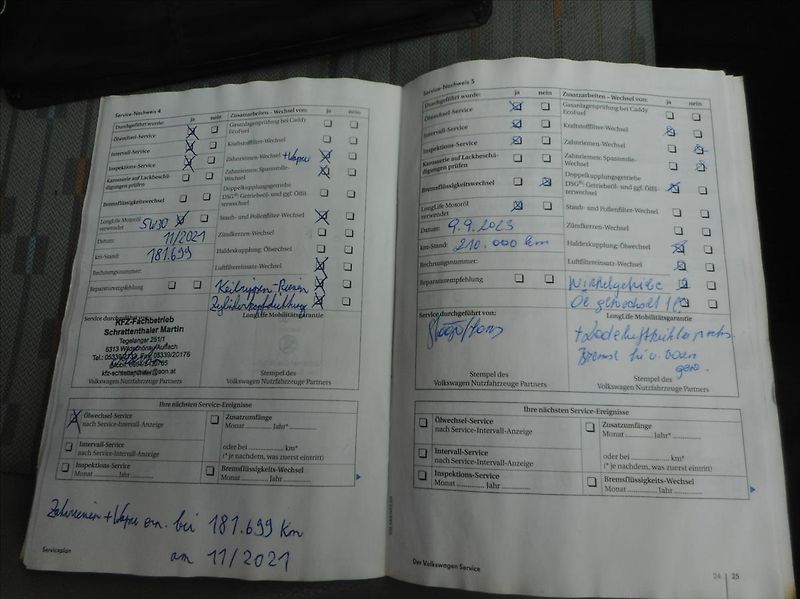 Service-Nachweis 4
Durchgeführt wurde: ja nein
Ölwechsel-Service
Intervall-Service
Inspektions-Service
Karosserie auf Lackbeschä-
digungen prüfen
Bremsflüssigkeitswechsel
LongLife Motoröl
verwendet 5W30
Datum: 11/2021
km-Stand: 181.699
Rechnungsnummer:
Reparaturempfehlung
Zusatzarbeiten – Wechsel von: ja nein
Gasanlagenprüfung bei Caddy
EcoFuel
Kraftstofffilter-Wechsel
Zahnriemen-Wechsel + Wapu
Zahnriemen Spannrolle-
Wechsel
Doppelkupplungsgetriebe
DSG®: Getriebeöl- und ggf. Ölfil-
terwechsel
Staub- und Pollenfilter-Wechsel
Zündkerzen-Wechsel
Haldexkupplung: Ölwechsel
Luftfiltereinsatz-Wechsel
Keilrippen-Riemen
Zylinderkopfdichtung
Service durchgeführt von:
KFZ-Fachbetrieb
Schrattenthaler Martin
Tegelanger 251/1
6313 Wildschönau/Auffach
Stempel des
Volkswagen Nutzfahrzeuge Partners
LongLife Mobilitätsgarantie
Stempel des
Volkswagen Nutzfahrzeuge Partners
Ihre nächsten Service-Ereignisse
Ölwechsel-Service
nach Service-Intervall-Anzeige
Intervall-Service
nach Service-Intervall-Anzeige
Inspektions-Service
Monat Jahr
Zusatzumfänge
Monat Jahr*
oder bei km*
(* je nachdem, was zuerst eintritt)
Bremsflüssigkeits-Wechsel
Monat Jahr
Zahnriemen + Wapu ern. bei 181.699 Km
am 11/2021
Serviceplan
Service-Nachweis 5
Durchgeführt wurde: ja nein
Ölwechsel-Service
Intervall-Service
Inspektions-Service
Karosserie auf Lackbeschä-
digungen prüfen
Bremsflüssigkeitswechsel
LongLife Motoröl
verwendet
Datum: 9.9.2023
km-Stand: 210.000 km
Rechnungsnummer:
Reparaturempfehlung
Zusatzarbeiten – Wechsel von: ja nein
Gasanlagenprüfung bei Caddy
EcoFuel
Kraftstofffilter-Wechsel
Zahnriemen-Wechsel
Zahnriemen Spannrolle-
Wechsel
Doppelkupplungsgetriebe
DSG®: Getriebeöl- und ggf. Ölfil-
terwechsel
Staub- und Pollenfilter-Wechsel
Zündkerzen-Wechsel
Haldexkupplung: Ölwechsel
Luftfiltereinsatz-Wechsel
Service durchgeführt von:
Stempel des
Volkswagen Nutzfahrzeuge Partners
LongLife Mobilitätsgarantie
Stempel des
Volkswagen Nutzfahrzeuge Partners
Ihre nächsten Service-Ereignisse
Ölwechsel-Service
nach Service-Intervall-Anzeige
Intervall-Service
nach Service-Intervall-Anzeige
Inspektions-Service
Monat Jahr
Zusatzumfänge
Monat Jahr*
oder bei km*
(* je nachdem, was zuerst eintritt)
Bremsflüssigkeits-Wechsel
Monat Jahr
Der Volkswagen Service
24 | 25